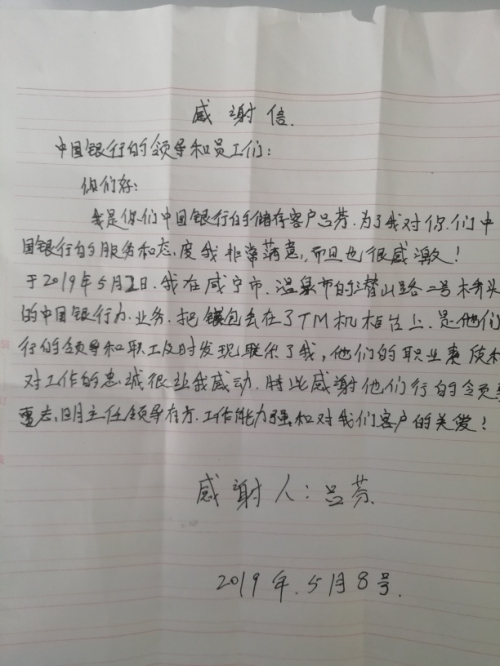 感谢信.
中国银行的领导和员工们:
你们好:
我是你们中国银行的储存客户吕芳.为了我对你.们中
国银行的服务和态.度我非常满意,而且也很感激!
于2019年5月2日.我在咸宁市.温泉市的潜山路二号桥头
的中国银行办.业务.把钱包丢在了TM机柜台上.是他们
行的领导和职工及时发现联系了我,他们的职业责任和
对工作的忠诚很让我感动.特此感谢他们行的领导
主任领导有方.工作能力强和对我们客户的关爱!
感谢人:吕芳.
2019年.5月8号.